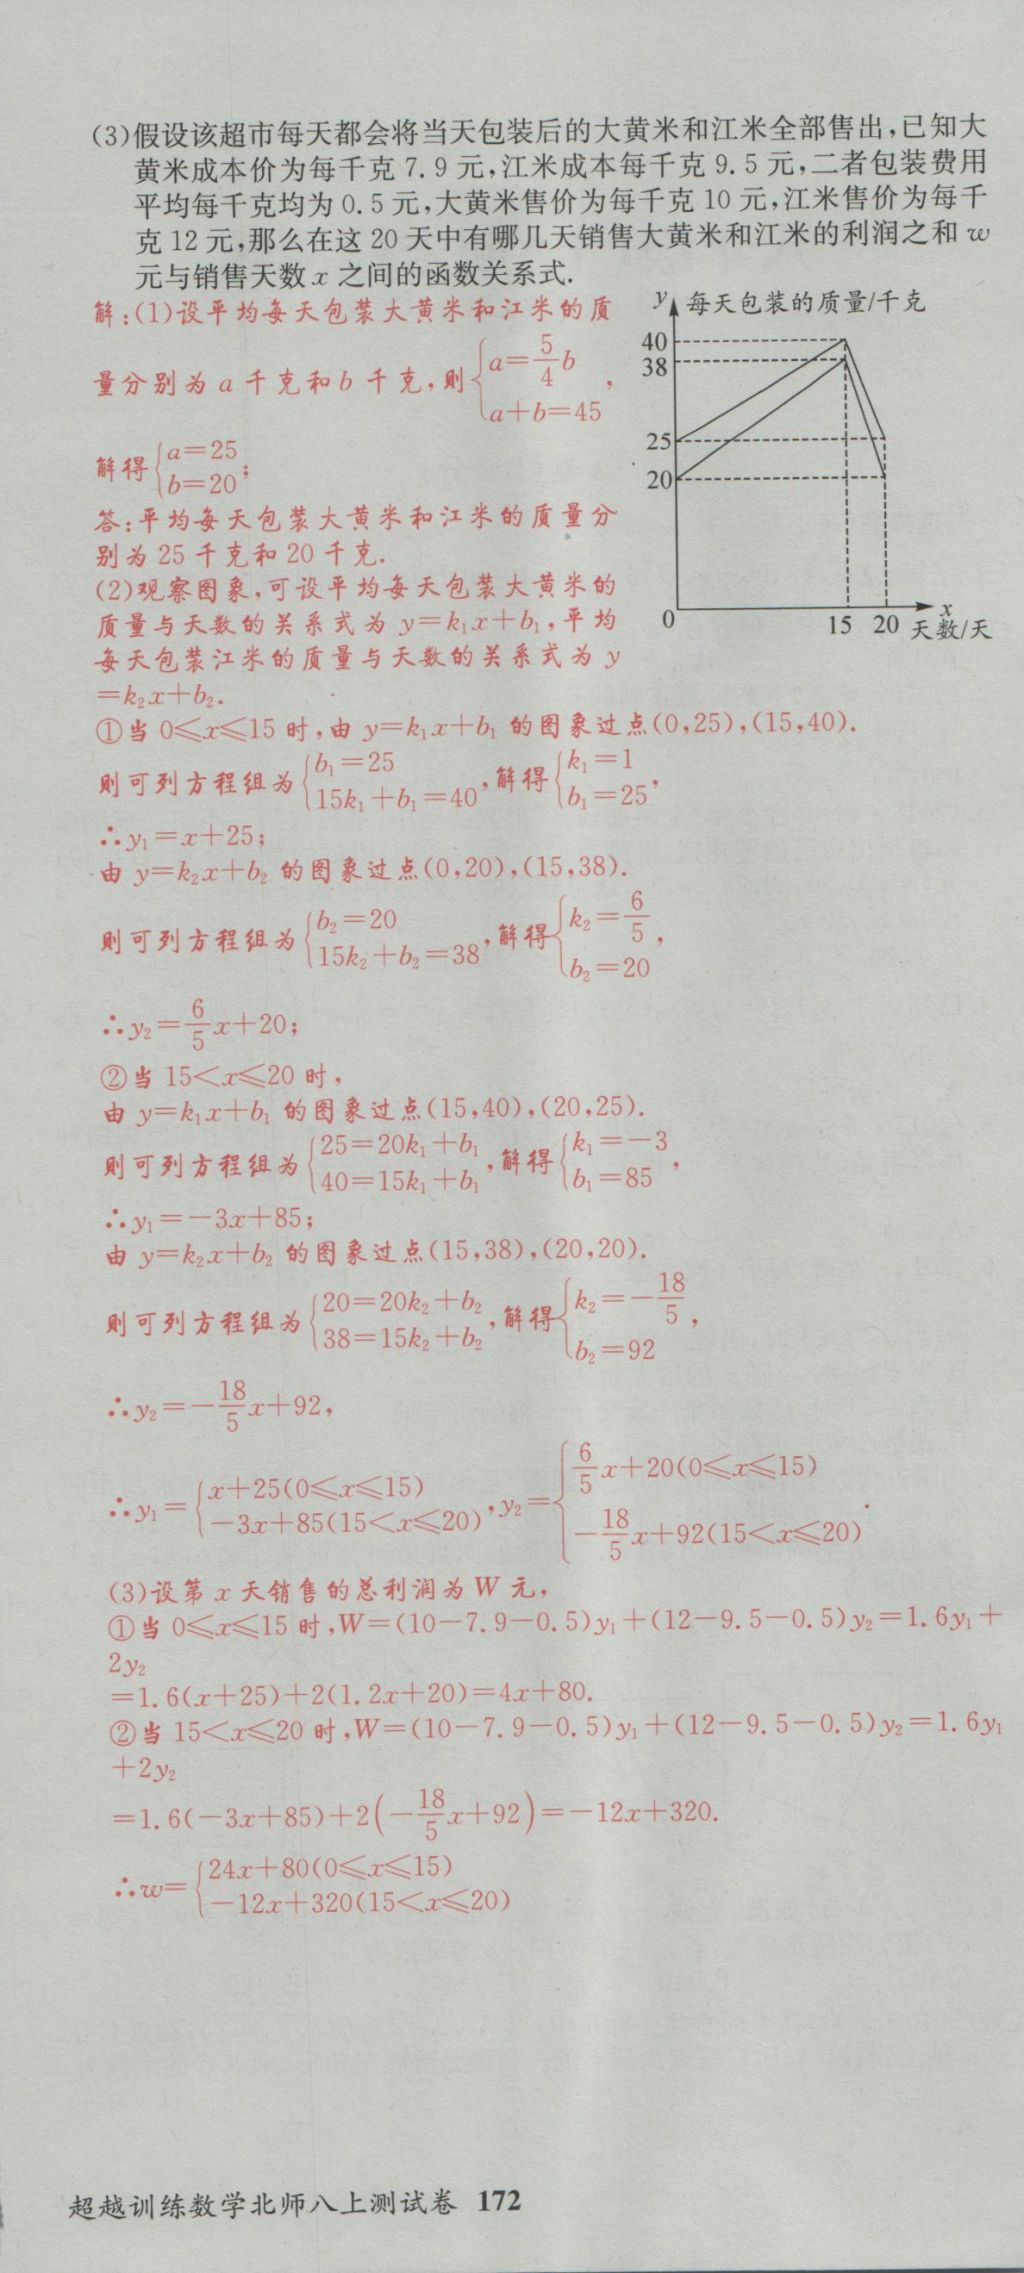 (3)假设该超市每天都会将当天包装后的大黄米和江米全部售出,已知大
黄米成本价为每千克7.9元,江米成本每千克9.5元,二者包装费用
平均每千克均为0.5元,大黄米售价为每千克10元,江米售价为每千
克12元,那么在这20天中有哪几天销售大黄米和江米的利润之和w
元与销售天数x之间的函数关系式.
解:(1)设平均每天包装大黄米和江米的质
量分别为a千克和b千克,则{a=5/4b
a+b=45,
解得{a=25
b=20;
答:平均每天包装大黄米和江米的质量分
别为25千克和20千克.
(2)观察图象,可设平均每天包装大黄米的
质量与天数的关系式为y=k₁x+b₁,平均
每天包装江米的质量与天数的关系式为y
=k₂x+b₂.
y 每天包装的质量/千克
40
38
25
20
0 15 20 x
天数/天
①当0≤x≤15时,由y=k₁x+b₁的图象过点(0,25),(15,40).
则可列方程组为{b₁=25
15k₁+b₁=40,解得{k₁=1
b₁=25,
∴y₁=x+25;
由y=k₂x+b₂的图象过点(0,20),(15,38).
则可列方程组为{b₂=20
15k₂+b₂=38,解得{k₂=6/5
b₂=20,
∴y₂=6/5x+20;
②当15<x≤20时,
由y=k₁x+b₁的图象过点(15,40),(20,25).
则可列方程组为{25=20k₁+b₁
40=15k₁+b₁,解得{k₁=-3
b₁=85,
∴y₁=-3x+85;
由y=k₂x+b₂的图象过点(15,38),(20,20).
则可列方程组为{20=20k₂+b₂
38=15k₂+b₂,解得{k₂=-18/5
b₂=92,
∴y₂=-18/5x+92,
∴y₁={x+25(0≤x≤15)
-3x+85(15<x≤20),y₂={6/5x+20(0≤x≤15)
-18/5x+92(15<x≤20).
(3)设第x天销售的总利润为W元,
①当0≤x≤15时,W=(10-7.9-0.5)y₁+(12-9.5-0.5)y₂=1.6y₁+
2y₂
=1.6(x+25)+2(1.2x+20)=4x+80.
②当15<x≤20时,W=(10-7.9-0.5)y₁+(12-9.5-0.5)y₂=1.6y₁
+2y₂
=1.6(-3x+85)+2(-18/5x+92)=-12x+320.
∴w={24x+80(0≤x≤15)
-12x+320(15<x≤20)
超越训练数学北师八上测试卷 172